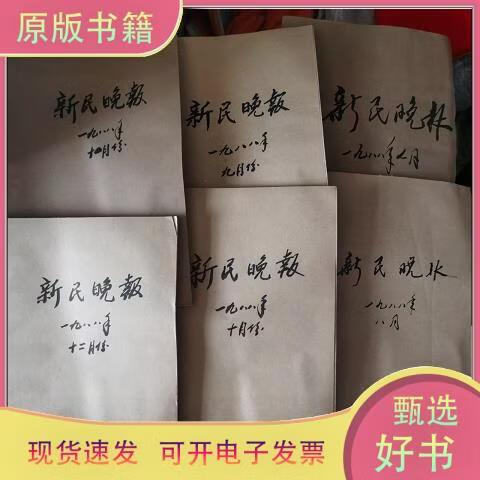 原版书籍
新民晚报
一九八八年
十月份
新民晚报
一九八八年
九月份
新民晚报
一九八八年七月
新民晚报
一九八八年
十二月份
新民晚报
一九八八年
十月份
新民晚报
一九八八年
八月
现货速发 可开电子发票
甄选
好书